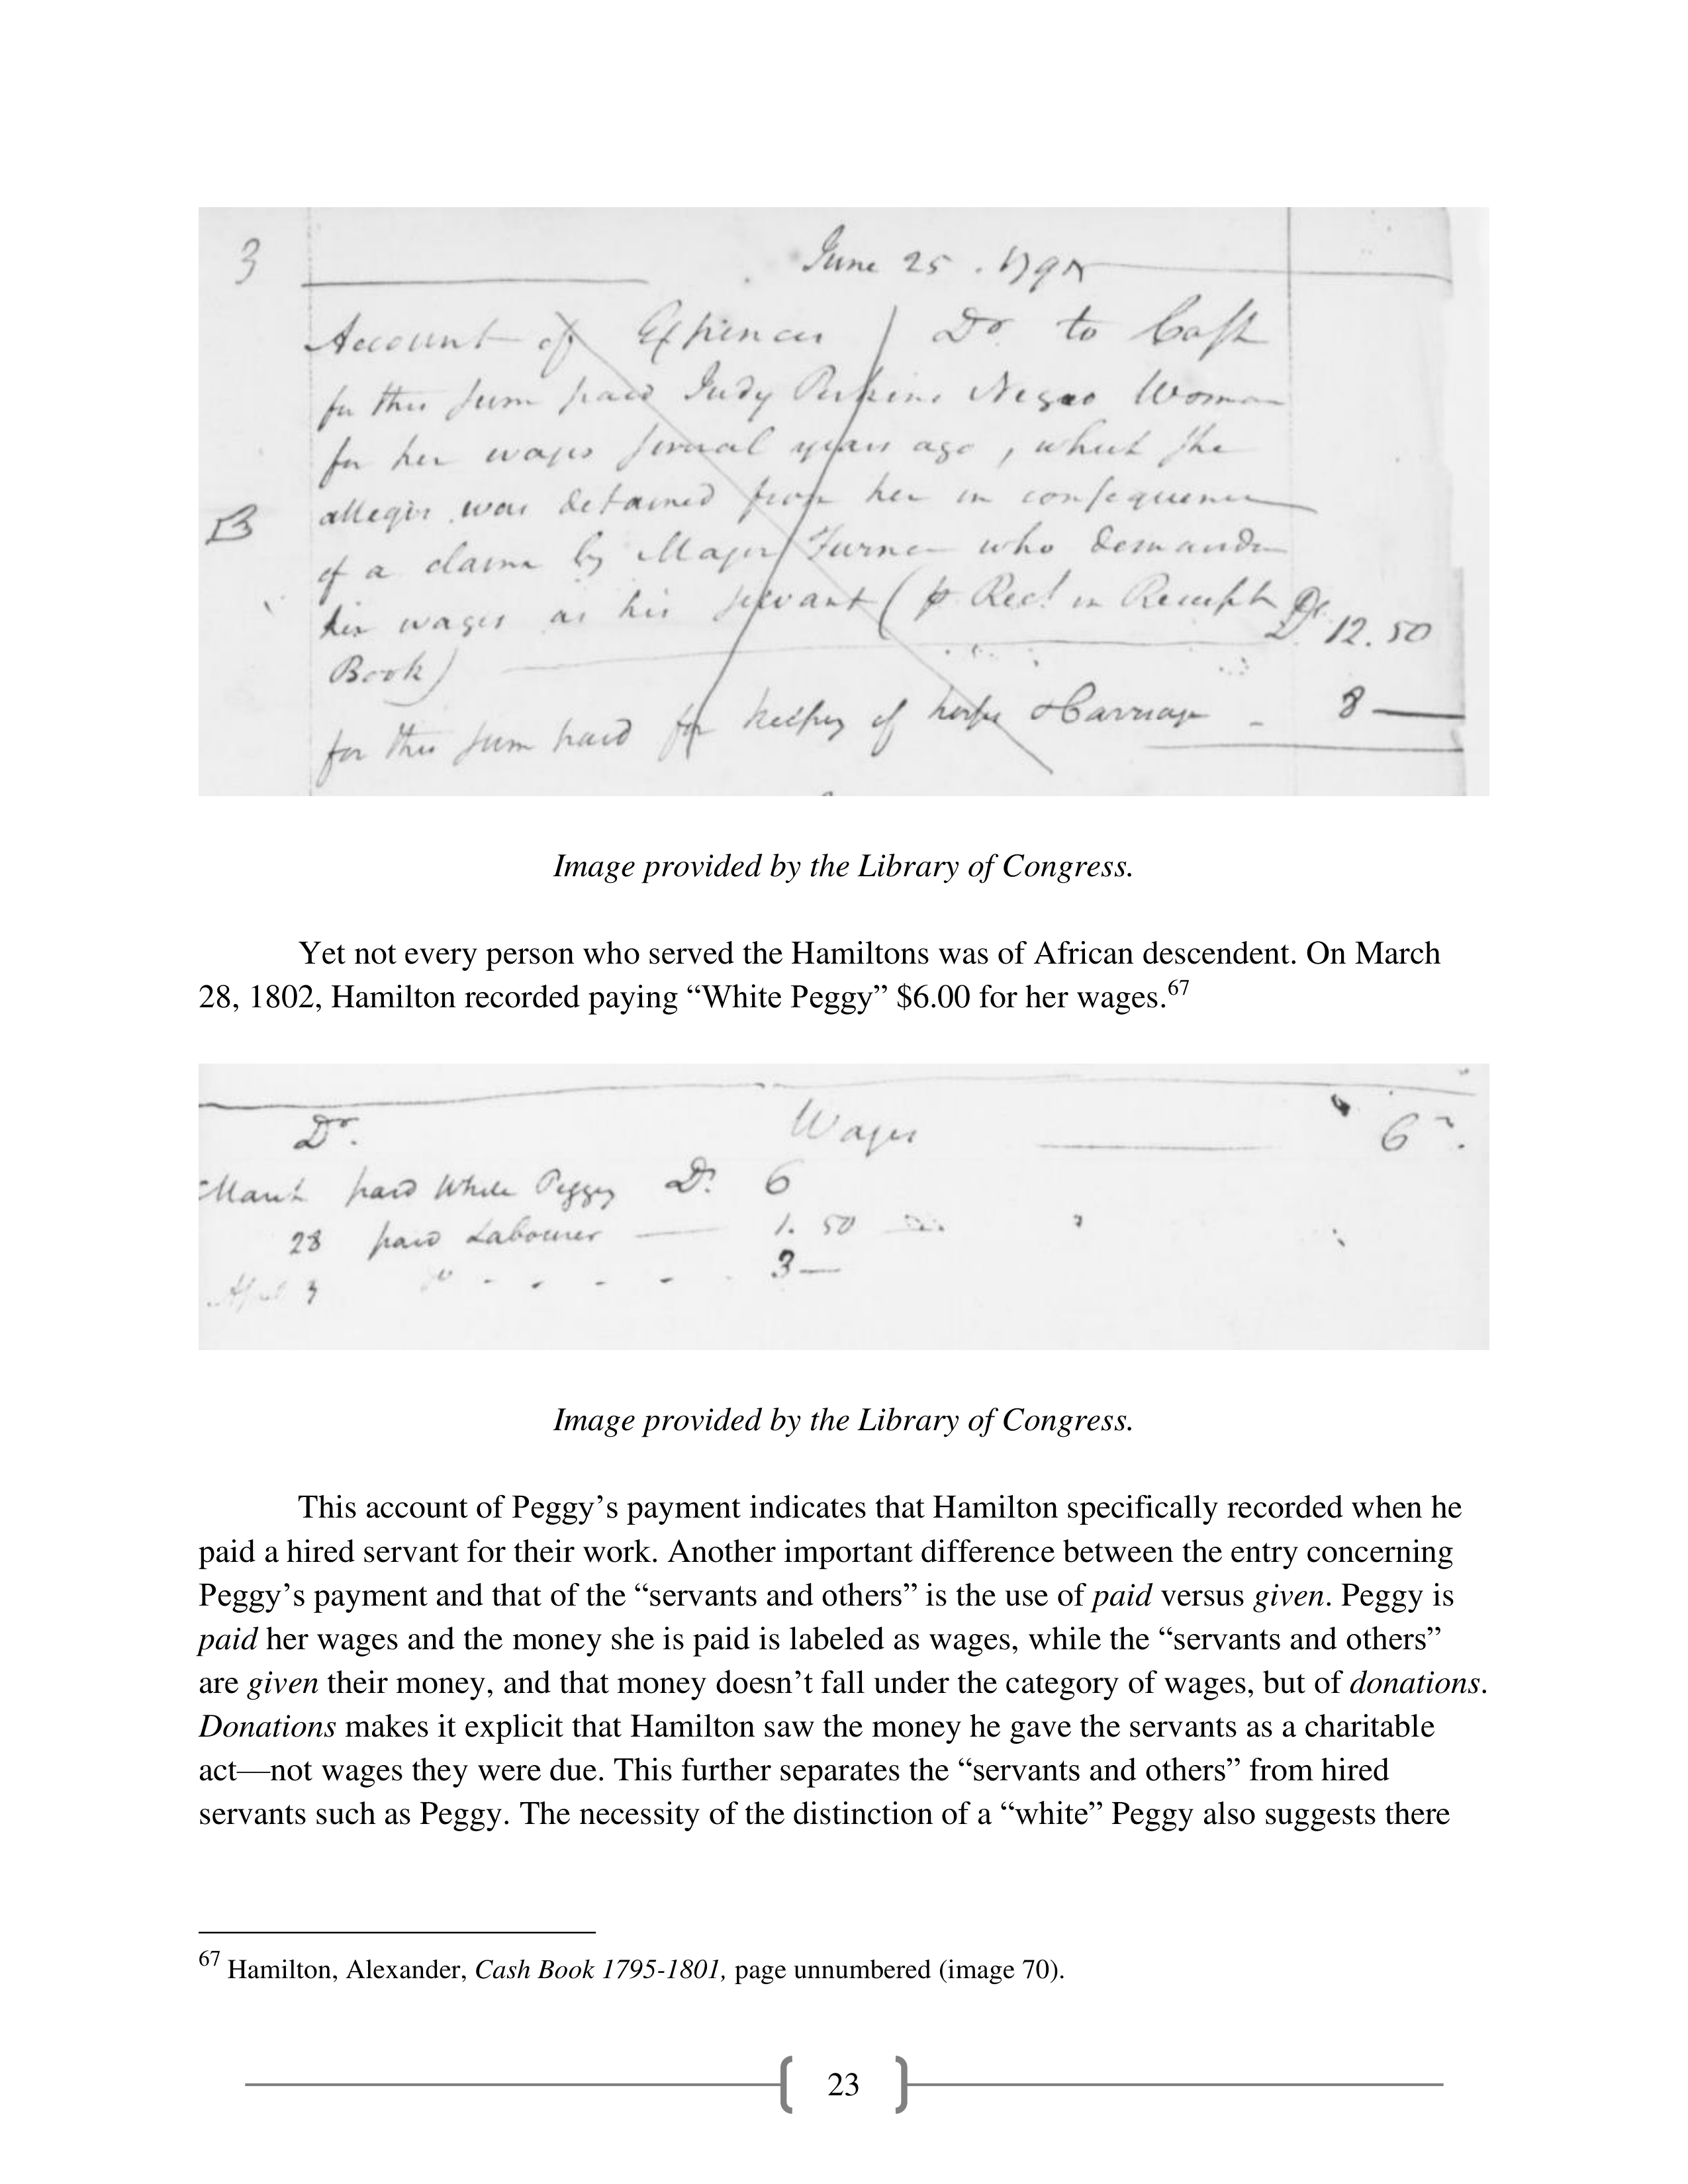 3
June 25 . 1795
Account of Expences Dr. to Cash
for this sum paid Judy Perkins Negro Woman
for her wages several years ago, which she
alleges was detained from her in consequence
B
of a claim by Major Turner who demanded
her wages as his servant ( p Rect. in Receipt
Book)
D 12.50
for this sum paid for keeping of horse & Carriage - 8 —
Image provided by the Library of Congress.
Yet not every person who served the Hamiltons was of African descendent. On March
28, 1802, Hamilton recorded paying “White Peggy” $6.00 for her wages.67
Dr. Wages 6
March paid White Peggy D. 6
28 paid Labourer — 1. 50
April 3 do - - - - 3 —
Image provided by the Library of Congress.
This account of Peggy’s payment indicates that Hamilton specifically recorded when he
paid a hired servant for their work. Another important difference between the entry concerning
Peggy’s payment and that of the “servants and others” is the use of paid versus given. Peggy is
paid her wages and the money she is paid is labeled as wages, while the “servants and others”
are given their money, and that money doesn’t fall under the category of wages, but of donations.
Donations makes it explicit that Hamilton saw the money he gave the servants as a charitable
act—not wages they were due. This further separates the “servants and others” from hired
servants such as Peggy. The necessity of the distinction of a “white” Peggy also suggests there
67 Hamilton, Alexander, Cash Book 1795-1801, page unnumbered (image 70).
23